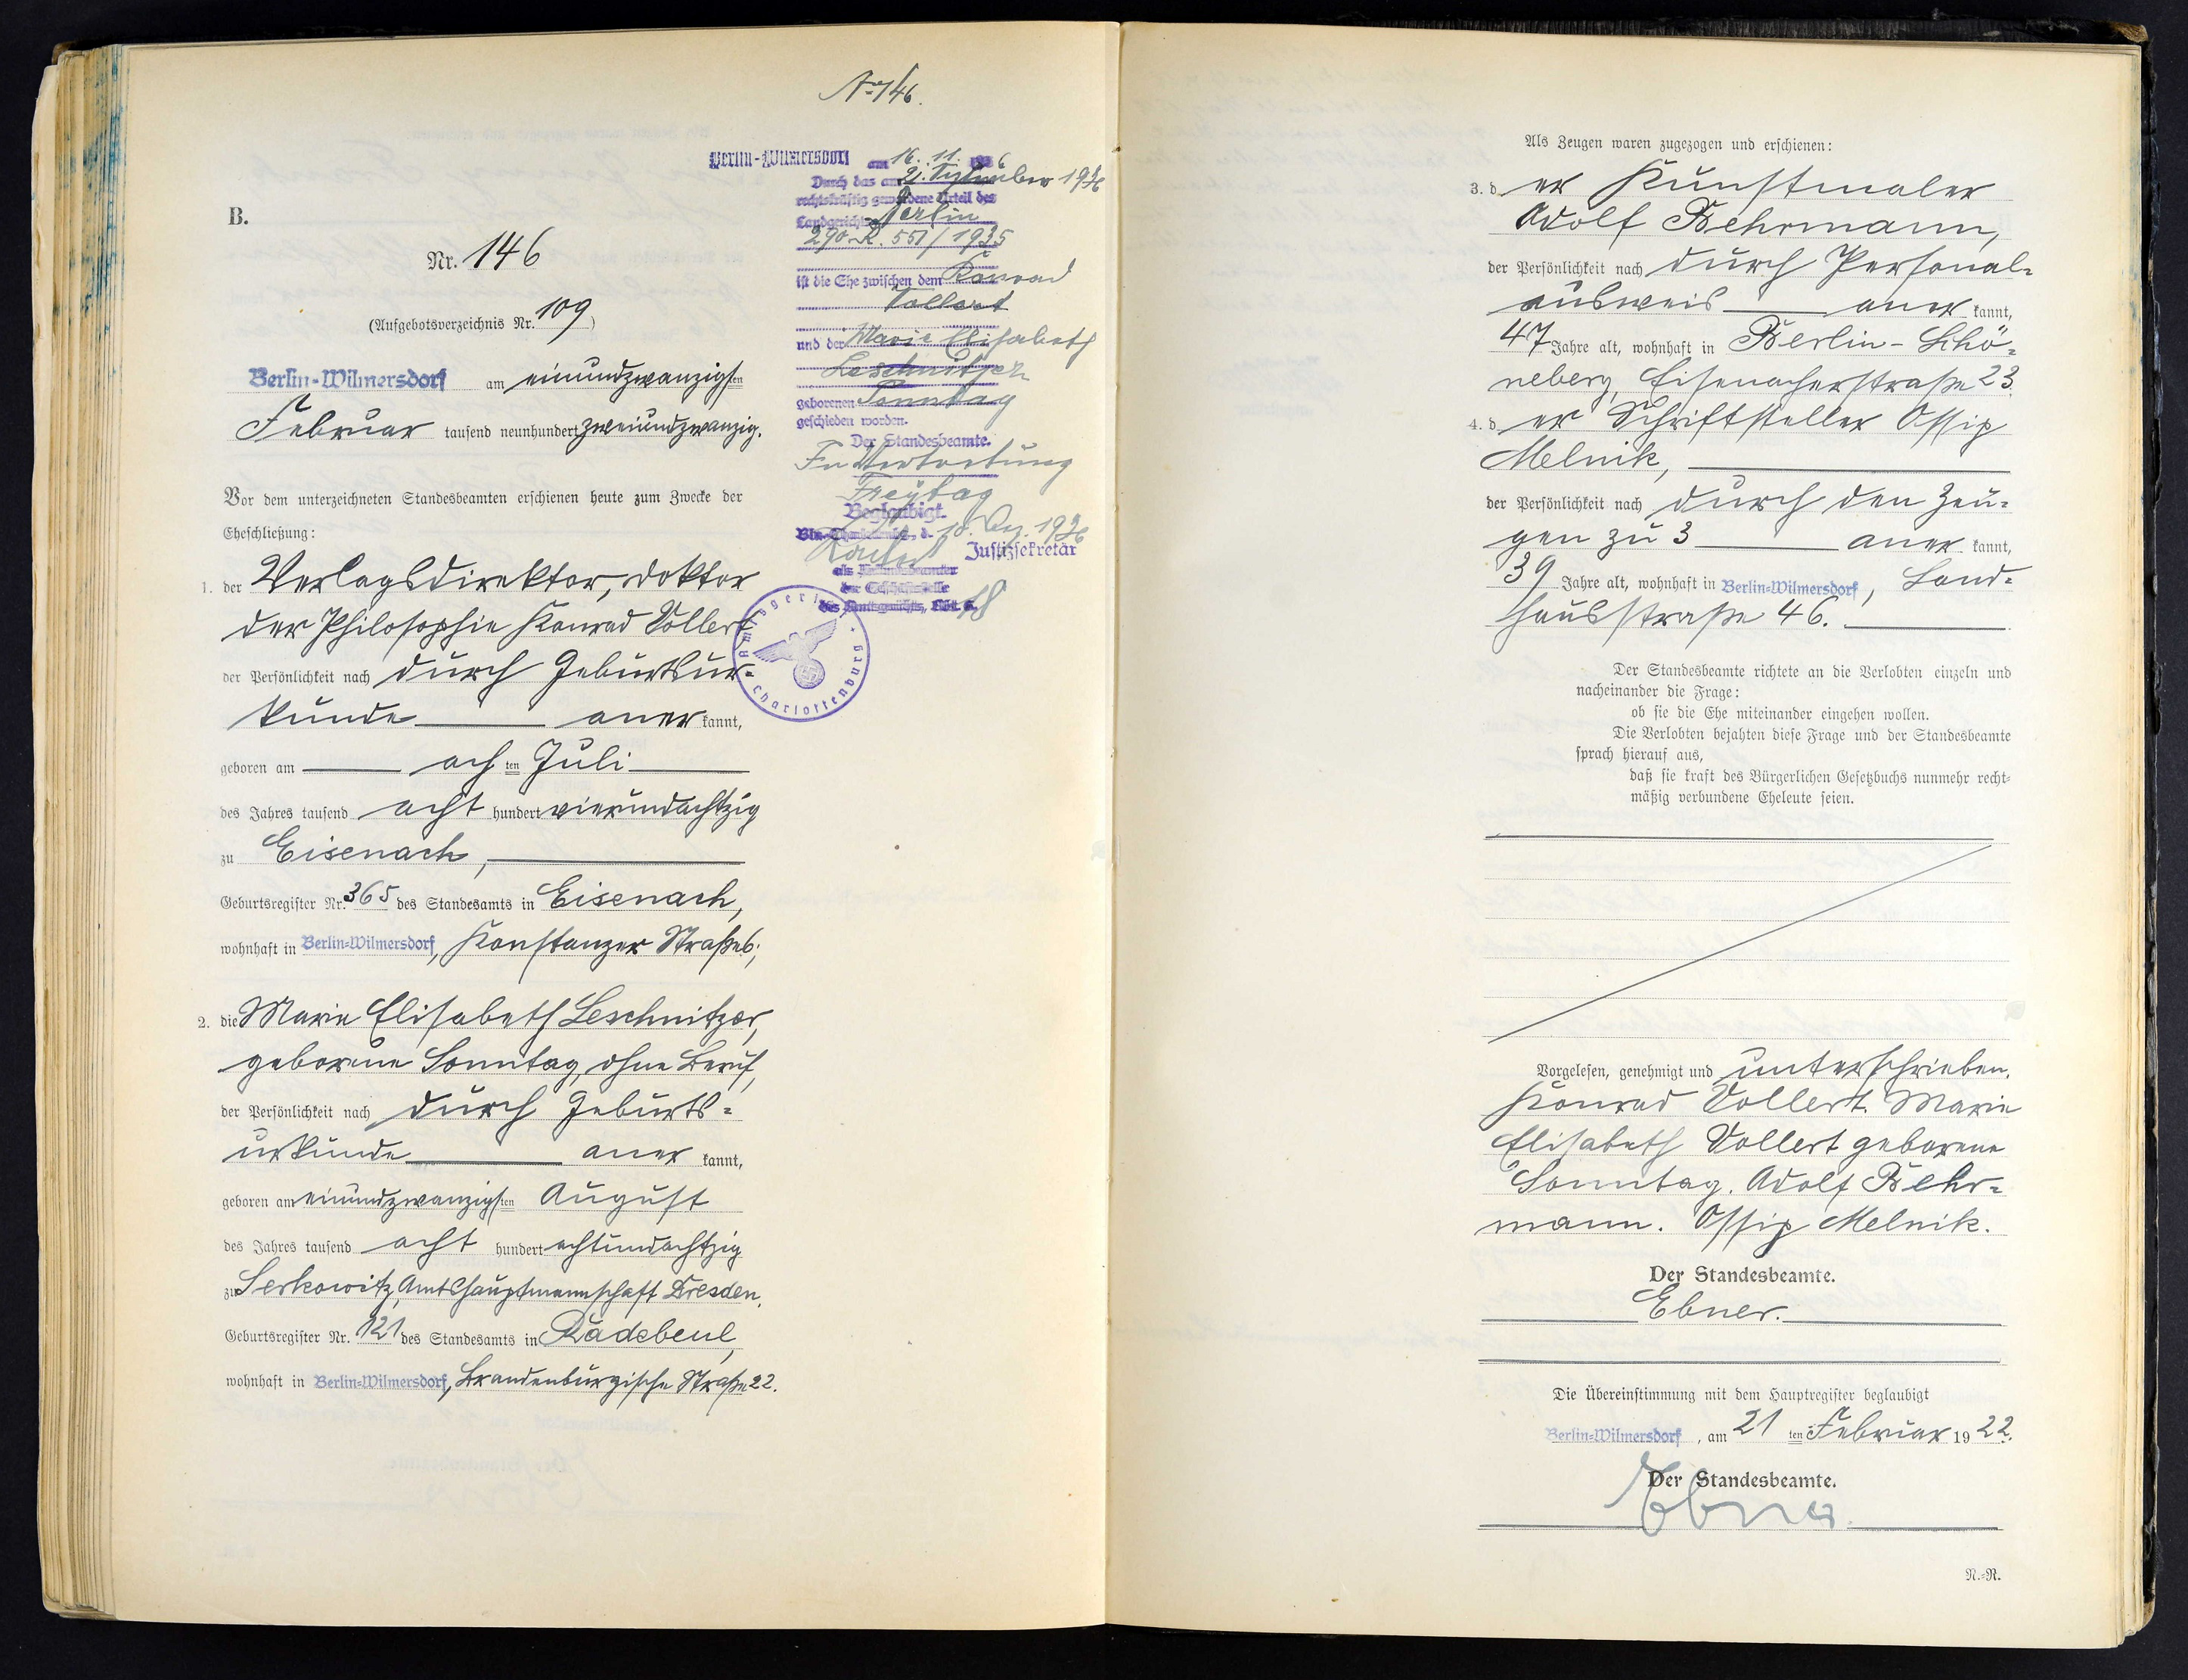 No 146.
B.
Nr. 146
(Aufgebotsverzeichnis Nr. 109)
Berlin-Wilmersdorf am einundzwanzigsten
Februar tausend neunhundert zweiundzwanzig.
Vor dem unterzeichneten Standesbeamten erschienen heute zum Zwecke der
Eheschließung:
1. der Verlagsdirektor, Doktor
der Philosophie Konrad Vollert
der Persönlichkeit nach durch Geburtsur-
kunde aner kannt,
geboren am ach ten Juli
des Jahres tausend acht hundert vierundachtzig
zu Eisenach,
Geburtsregister Nr. 365 des Standesamts in Eisenach,
wohnhaft in Berlin-Wilmersdorf, Konstanzer Straße 6;
2. die Marie Elisabeth Leschnitzer,
geborene Sonntag, ohne Beruf,
der Persönlichkeit nach durch Geburts-
urkunde aner kannt,
geboren am einundzwanzigsten August
des Jahres tausend acht hundert achtundachtzig
zu Serkowitz, Amtshauptmannschaft Dresden,
Geburtsregister Nr. 121 des Standesamts in Radebeul,
wohnhaft in Berlin-Wilmersdorf, Brandenburgische Straße 22.
Berlin-Wilmersdorf am 16. 11. 1936
Durch das am 2. September 1936
rechtskräftig gewordene Urteil des
Landgerichts Berlin
290 R. 551/1935
ist die Ehe zwischen dem Konrad
Vollert
und der Marie Elisabeth
Leschnitzer
geborenen Sonntag
geschieden worden.
Der Standesbeamte.
In Vertretung
Freytag
Beglaubigt.
Bln.-Charlottenbg., d. 10. Dez. 1936
Justizsekretär
als Urkundsbeamter
der Geschäftsstelle
des Amtsgerichts, Abt.
Amtsgericht Charlottenburg
Als Zeugen waren zugezogen und erschienen:
3. d er Kunstmaler
Adolf Behrmann,
der Persönlichkeit nach durch Personal-
ausweis aner kannt,
47 Jahre alt, wohnhaft in Berlin-Schö-
neberg, Eisenacherstraße 23.
4. d er Schriftsteller Ossip
Melnik,
der Persönlichkeit nach durch den Zeu-
gen zu 3 aner kannt,
39 Jahre alt, wohnhaft in Berlin-Wilmersdorf, Land-
hausstraße 46.
Der Standesbeamte richtete an die Verlobten einzeln und
nacheinander die Frage:
ob sie die Ehe miteinander eingehen wollen.
Die Verlobten bejahten diese Frage und der Standesbeamte
sprach hierauf aus,
daß sie kraft des Bürgerlichen Gesetzbuchs nunmehr recht-
mäßig verbundene Eheleute seien.
Vorgelesen, genehmigt und unterschrieben.
Konrad Vollert. Marie
Elisabeth Vollert geborene
Sonntag. Adolf Behr-
mann. Ossip Melnik.
Der Standesbeamte.
Ebner.
Die Übereinstimmung mit dem Hauptregister beglaubigt
Berlin-Wilmersdorf, am 21 ten Februar 1922.
Der Standesbeamte.
Ebner.
N.-R.